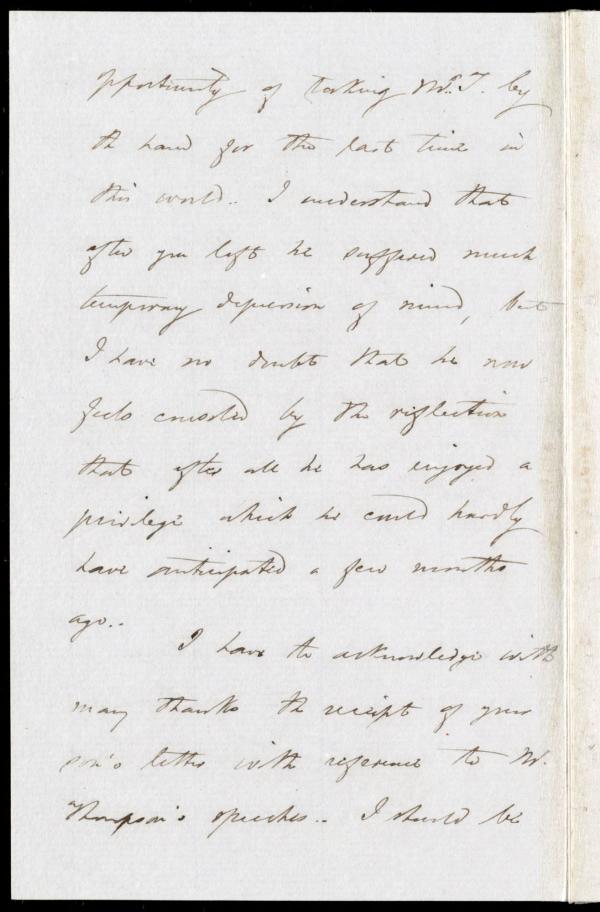 opportunity of taking Mr. T. by
the hand for the last time in
this world.. I understand that
after you left he suffered much
temporary depression of mind, but
I have no doubt that he now
feels consoled by the reflection
that after all he has enjoyed a
privilege which he could hardly
have anticipated a few months
ago..
I have to acknowledge with
many thanks the receipt of your
son's letter with reference to Mr.
Thompson's speeches.. I should be